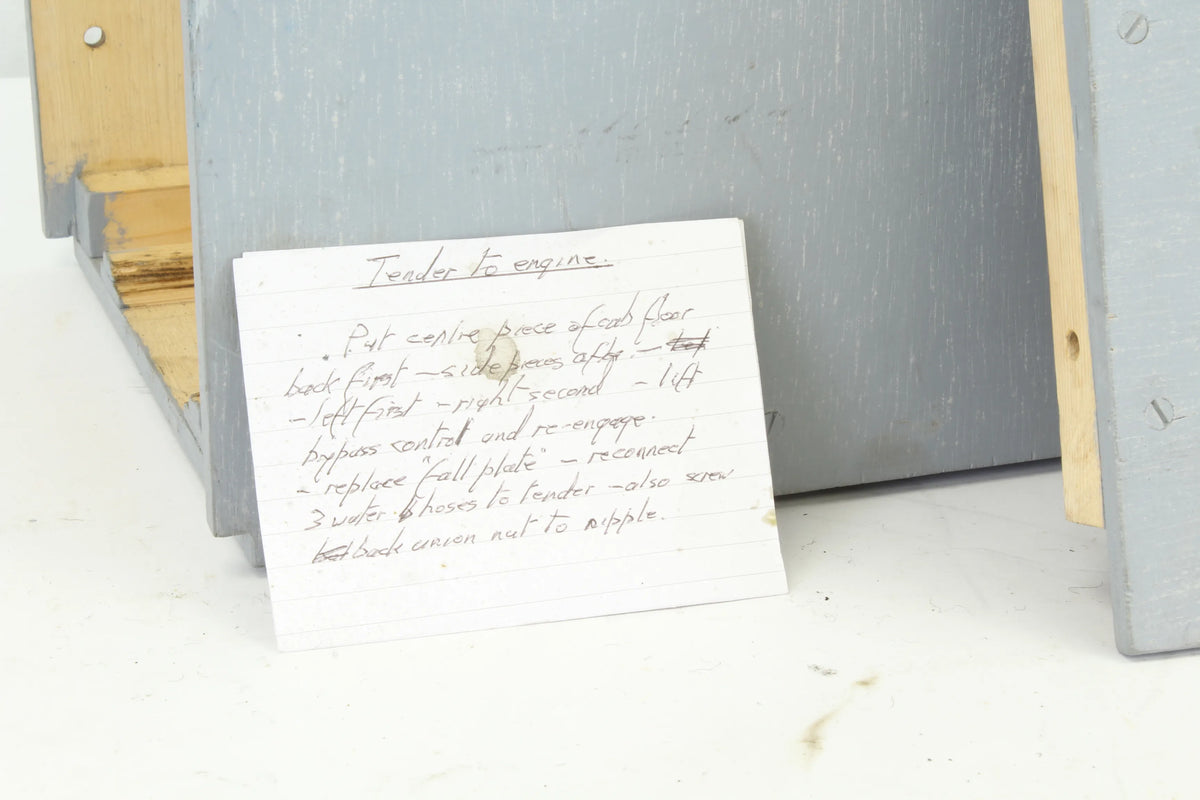 Tender to engine.
. Put centre piece of cab floor
back first - side pieces after. -
- left first - right second - lift
bypass control and re-engage.
- replace "fall plate" - reconnect
3 water hoses to tender - also screw
back union nut to nipple.